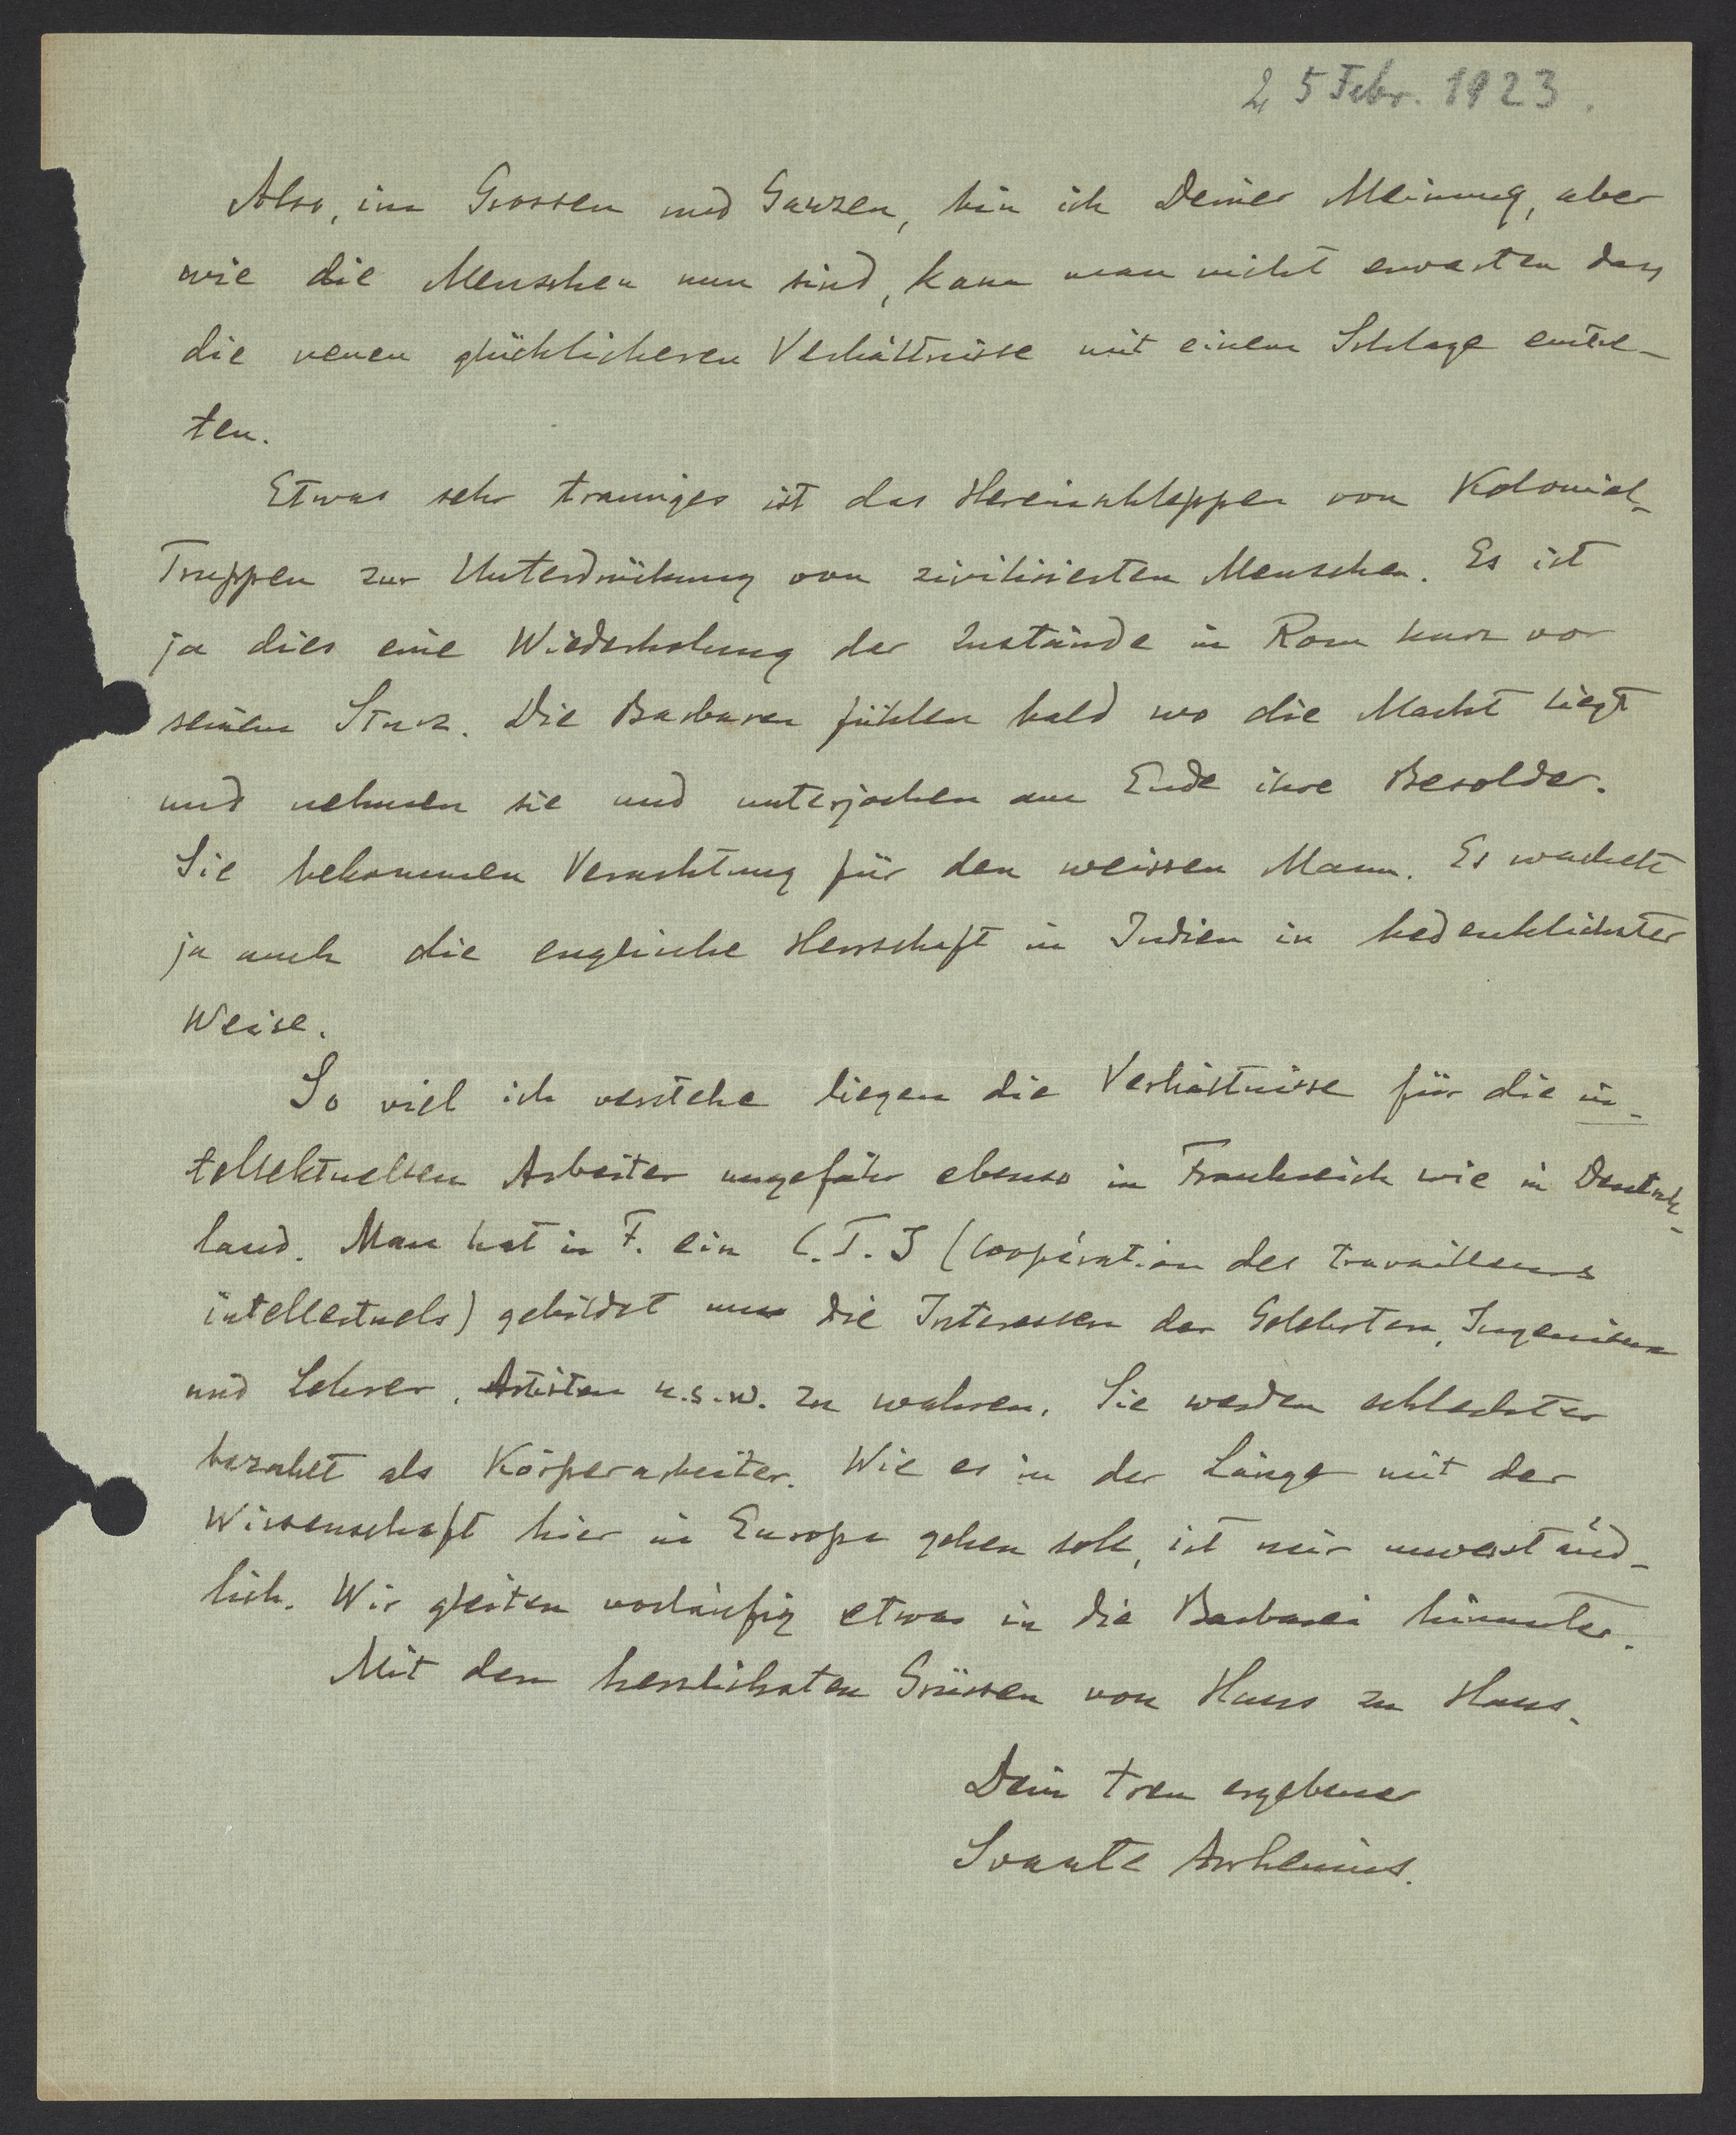 25 Febr. 1923.
Also, im Grossen und Ganzen, bin ich Deiner Meinung, aber
wie die Menschen nun sind, kann man nicht erwarten dass
die neuen glücklicheren Verhältnisse mit einem Schlage eintre-
ten.
Etwas sehr trauriges ist das Hereinschleppen von Kolonial-
Truppen zur Unterdrückung von zivilisierten Menschen. Es ist
ja dies eine Wiederholung der Zustände in Rom kurz vor
seinem Sturz. Die Barbaren fühlen bald wo die Macht liegt
und nehmen sie und unterjochen am Ende ihre Besolder.
Sie bekommen Verachtung für den weissen Mann. Es wackelt
ja auch die englische Herrschaft in Indien in bedenklichster
Weise.
So viel ich verstehe liegen die Verhältnisse für die in-
tellektuellen Arbeiter ungefähr ebenso in Frankreich wie in Deutsch-
land. Man hat in F. ein C.T.I (Coopération des travailleurs
intellectuels) gebildet um die Interessen der Gelehrten, Ingenieure
und Lehrer, Artisten u.s.w. zu wahren. Sie werden schlechter
bezahlt als Körperarbeiter. Wie es in der Länge mit der
Wissenschaft hier in Europa gehen soll, ist mir unverständ-
lich. Wir gleiten vorläufig etwas in die Barbarei hinunter.
Mit den herzlichsten Grüssen von Haus zu Haus.
Dein treu ergebener
Svante Arrhenius.